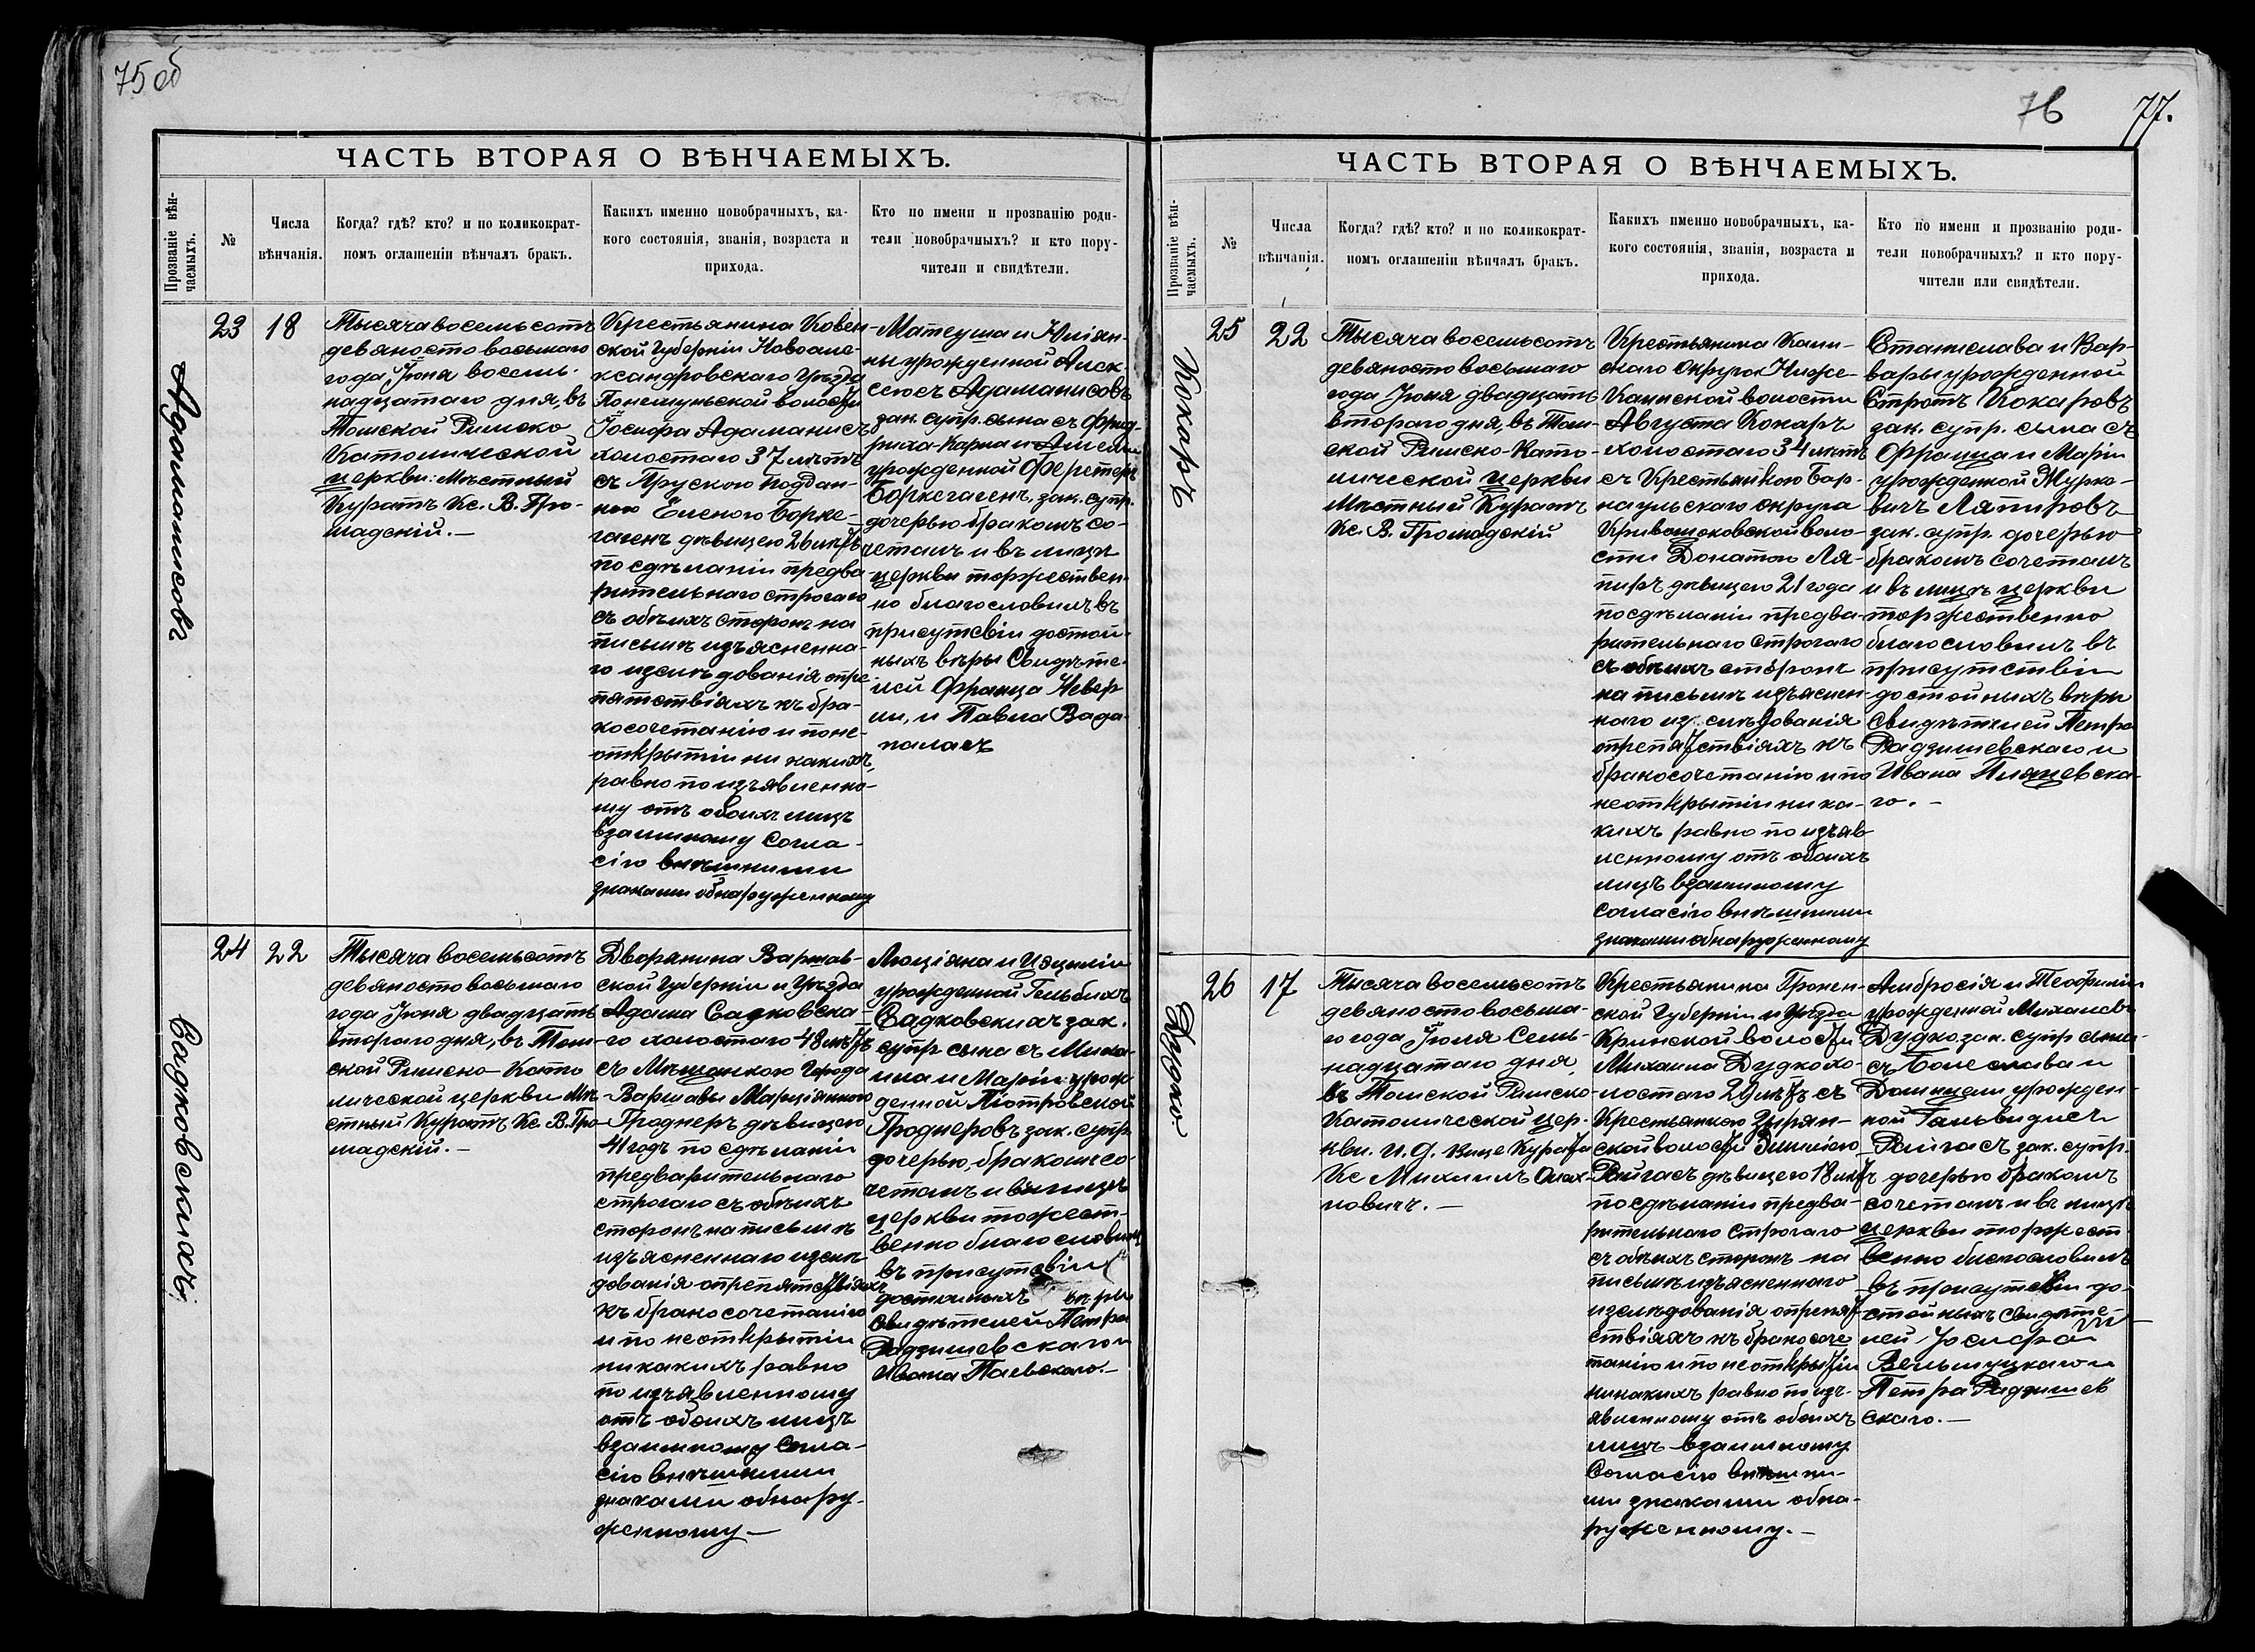 75 об
ЧАСТЬ ВТОРАЯ О ВѢНЧАЕМЫХЪ.
Прозваніе вѣн-
чаемыхъ.
№
Числа
вѣнчанія.
Когда? гдѣ? кто? и по коликократ-
номъ оглашеніи вѣнчалъ бракъ.
Какихъ именно новобрачныхъ, ка-
кого состоянія, званія, возраста и
прихода.
Кто по имени и прозванію роди-
тели новобрачныхъ? и кто пору-
чители и свидѣтели.
Адаманисовъ
23
18
Тысяча восемьсотъ
девяносто восьмаго
года Іюня восем-
надцатаго дня, въ
Томской Римско
Католической
церкви: Мѣстный
Куратъ Кс. В. Гро-
мадскій. —
Крестьянина Ковен-
ской Губерніи Новоале-
ксандровскаго Уѣзда
Понемуньской волости
Іосифа Адаманисъ
холостаго 37 лѣтъ
съ Прускою поддан-
ною Еленою Борке-
гагенъ дѣвицею 26 лѣтъ
по сдѣланіи предва
рительнаго строгаго
съ обѣихъ сторонъ на
письмѣ изъясненна-
го изслѣдованія опре
пятствіяхъ къ бра-
косочетанію и поне-
открытіи ни какихъ,
равно по изъявленно-
му отъ обоихъ лицъ
взаимному согла-
сію внѣшними
знаками обнаруженному
Матеуша и Юліян-
ны урожденной Алек-
сеюсъ Адаманисовъ
зак. супр. сына съ Фрид-
риха-Карла и Амеліи
урожденной Ферстеръ
Боркегагенъ, зак. супр.
дочерью бракомъ со-
четалъ и въ лицѣ
церкви торжествен-
но благословилъ въ
присутсвіи достой-
ныхъ вѣры Свидѣте-
лей Франца Невер
ли, и Павла Вада-
паласъ
Садковскихъ
24
22
Тысяча восемьсотъ
девяносто восьмаго
года Іюня двадцать
втораго дня, въ Том-
ской Римско Като
лической церкви Мѣ
стный Куратъ Кс. В. Гро-
мадскій. —
Дворянина Варшав-
ской Губерніи и Уѣзда
Адама Садковска-
го холостаго 48 лѣтъ
съ Мѣщанкою Города
Варшавы Марціянною
Гроднеръ дѣвицею
41 годъ по сдѣланіи
предварительнаго
строгаго съ обѣихъ
сторонъ на письмѣ
изъясненнаго изслѣ
дованія опрепятствіяхъ
къ бракосочетанію
и по неоткрытіи
никакихъ равно
по изъявленному
отъ обоихъ лицъ
взаимному Согла-
сію внѣшними
знаками обнару-
женному —
Люціяна и Цециліи
урожденной Гельбихъ
Садковскихъ зак.
супр сына съ Миха-
ила и Маріи урож-
денной Піотровской
Гроднеровъ зак. супр
дочерью, бракомъ со-
четалъ и въ лицѣ
церкви тожест-
венно благословилъ
въ присутсвіи
достойныхъ вѣры
Свидѣтелей Петра
Радзишевскаго и
Ивана Паевскаго. —
76
77.
ЧАСТЬ ВТОРАЯ О ВѢНЧАЕМЫХЪ.
Прозваніе вѣн-
чаемыхъ.
№
Числа
вѣнчанія.
Когда? гдѣ? кто? и по коликократ-
номъ оглашеніи вѣнчалъ бракъ.
Какихъ именно новобрачныхъ, ка-
кого состоянія, званія, возраста и
прихода.
Кто по имени и прозванію роди-
тели новобрачныхъ? и кто пору-
чители или свидѣтели.
Кокаръ
25
22
Тысяча восемьсотъ
девяносто восьмаго
года Іюня двадцать
втораго дня, въ Том-
ской Римско-Като-
лической церкви
Мѣстный Куратъ
Кс. В. Громадскій
Крестьянина Каин-
скаго Округа Ниже-
Каинской волости
Августа Кокаръ
холостаго 34 лѣтъ
съ Крестьянкою Бар-
наульскаго округа
Кривощековской воло-
сти Донатою Ля-
пиръ дѣвицею 21 года
по сдѣланіи предва-
рительнаго строгаго
съ обѣихъ сторонъ
на письмѣ изъяснен-
наго изслѣдованія
опрепятствіяхъ къ
бракосочетанію и по
неоткрытіи ни ка-
кихъ равно по изъяв-
ленному отъ обоихъ
лицъ взаимному
согласію внѣшними
знаками обнаруженному
Станислава и Вар-
вары урожденной
Стротъ Кокаровъ
зак. супр. сына съ
Франца и Маріи
урожденной Журко-
вичъ Ляпировъ
зак. супр. дочерью
бракомъ сочеталъ
и въ лицѣ церкви
торжественно
благословилъ въ
присутствіи
достойныхъ вѣры
свидѣтелей Петра
Радзишевскаго и
Ивана Пляцевска-
го. —
Дудко
26
17
Тысяча восемьсотъ
девяносто восьма-
го года Іюля Семь-
надцатаго дня,
въ Томской Римско-
Католической цер-
кви. И. д. Вице Курата
Кс Михаилъ Олех-
новичъ. —
Крестьянина Гроднен-
ской Губерніи и Уѣзда
Крынской волости
Михаила Дудко хо-
лостаго 29 лѣтъ съ
Крестьянкою Зырян-
ской волости Эмиліею
Райгасъ дѣвицею 18 лѣтъ
по сдѣланіи предва-
рительнаго строгаго
съ обѣихъ сторонъ на
письмѣ изъясненнаго
изслѣдованія опрепят-
ствіяхъ къ бракосоче
танію и по неоткрытіи
никакихъ равно по изъ-
явленному отъ обоихъ
лицъ взаимному
Согласію внѣшни-
ми знаками обна-
руженному. —
Амбросія и Теофиліи
урожденной Михалевъ
Дудко зак. супр сына-
съ Болеслава и
Доминцели урожден-
ной Гальвидисъ
Райгасъ зак. супр.
дочерью бракомъ
сочеталъ и въ лицѣ
церкви торжест
венно благословилъ
въ присутсвіи до-
стойныхъ Свидѣте-
лей Іосифа
Вельмуцкаго и
Петра Радзишев
скаго. —